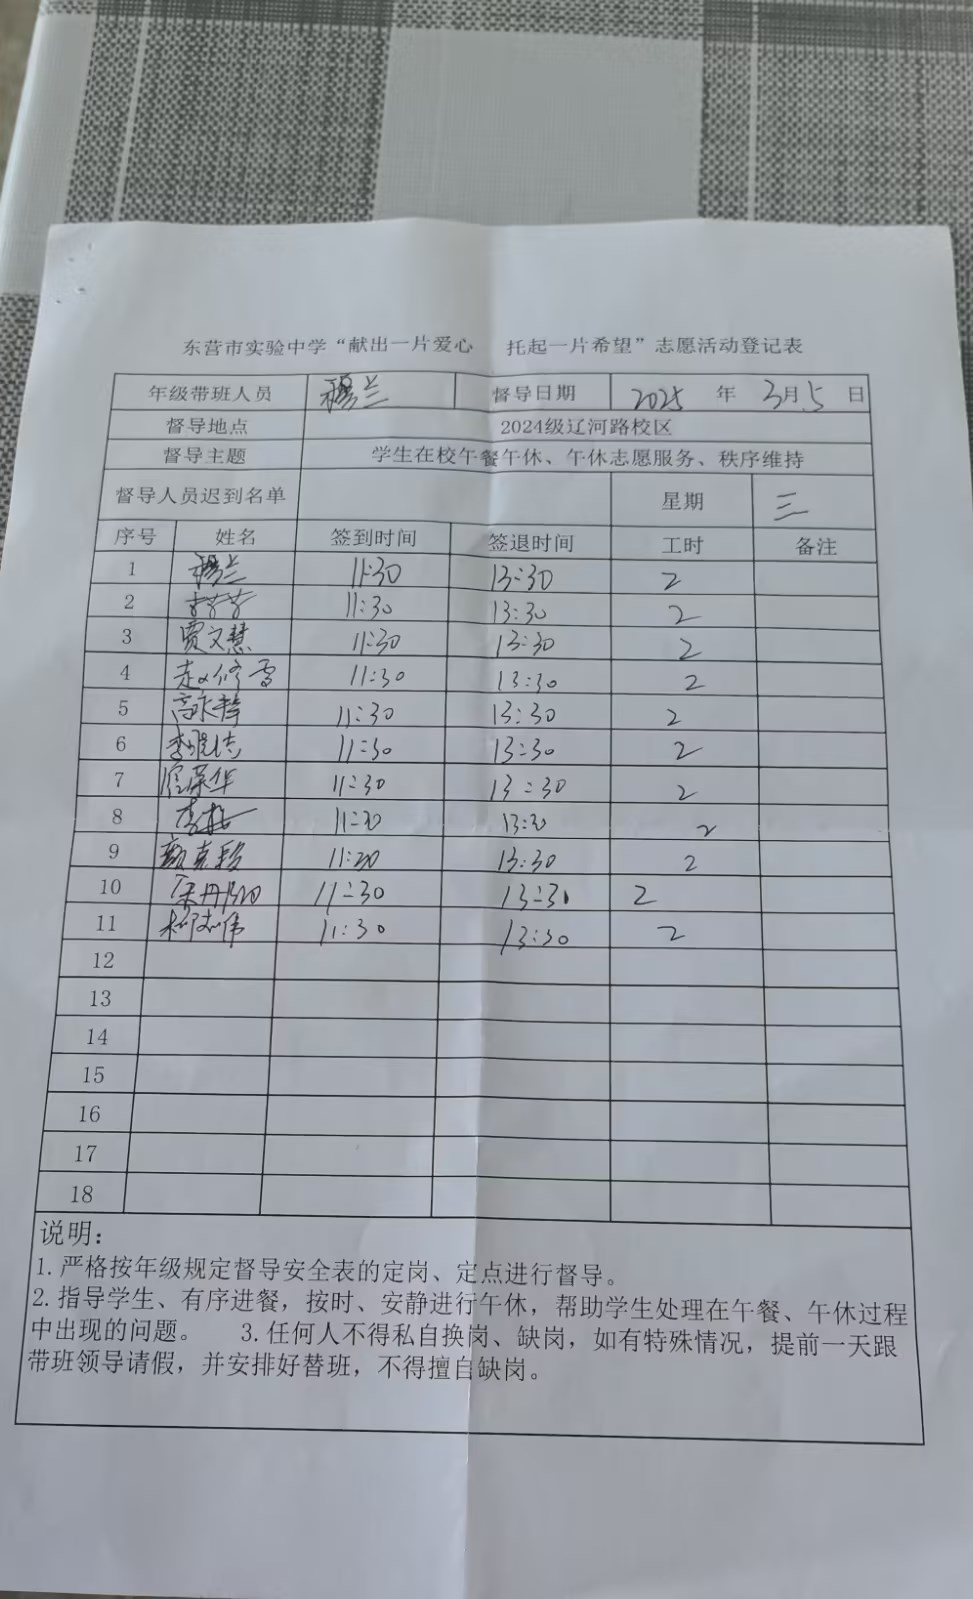 东营市实验中学“献出一片爱心 托起一片希望”志愿活动登记表
年级带班人员 穆兰 督导日期 2025 年 3月5 日
督导地点 2024级辽河路校区
督导主题 学生在校午餐午休、午休志愿服务、秩序维持
督导人员迟到名单 星期 三
序号 姓名 签到时间 签退时间 工时 备注
1 穆兰 11:30 13:30 2
2 11:30 13:30 2
3 贾文慧 11:30 13:30 2
4 赵修雪 11:30 13:30 2
5 11:30 13:30 2
6 11:30 13:30 2
7 11:30 13:30 2
8 11:30 13:30 2
9 11:20 13:30 2
10 11:30 13:30 2
11 11:30 13:30 2
12
13
14
15
16
17
18
说明:
1.严格按年级规定督导安全表的定岗、定点进行督导。
2.指导学生、有序进餐，按时、安静进行午休，帮助学生处理在午餐、午休过程
中出现的问题。 3.任何人不得私自换岗、缺岗，如有特殊情况，提前一天跟
带班领导请假，并安排好替班，不得擅自缺岗。